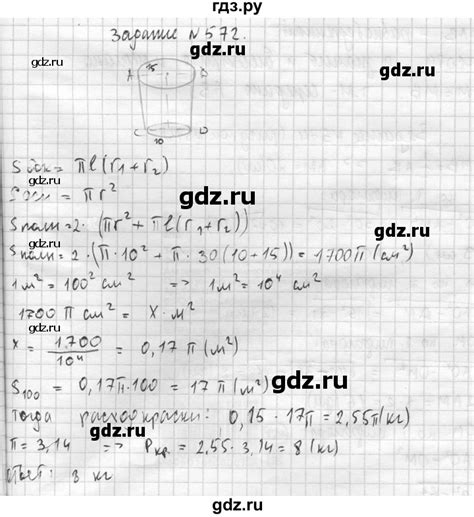 гдз.ру
Задание №572.
gdz.ru gdz.ru
A 15 B
C 10 D
gdz.ru gdz.ru
S бок = πl(r₁+r₂)
S осн = πr²
gdz.ru
S полн = 2·(πr²+πl(r₁+r₂))
gdz.ru
S полн = 2·(π·10²+π·30(10+15)) = 1700π (см²)
gdz.ru
1м² = 100² см² => 1м² = 10⁴ см²
gdz.ru
1700π см² = x·м²
gdz.ru
x = 1700/10⁴ = 0,17π (м²)
gdz.ru
S₁₀₀ = 0,17π·100 = 17π (м²)
gdz.ru
Тогда расход краски: 0,15·17π = 2,55π (кг)
gdz.ru
π = 3,14 => Pкр. = 2,55·3,14 = 8 (кг)
gdz.ru
Ответ: 8 кг
gdz.ru